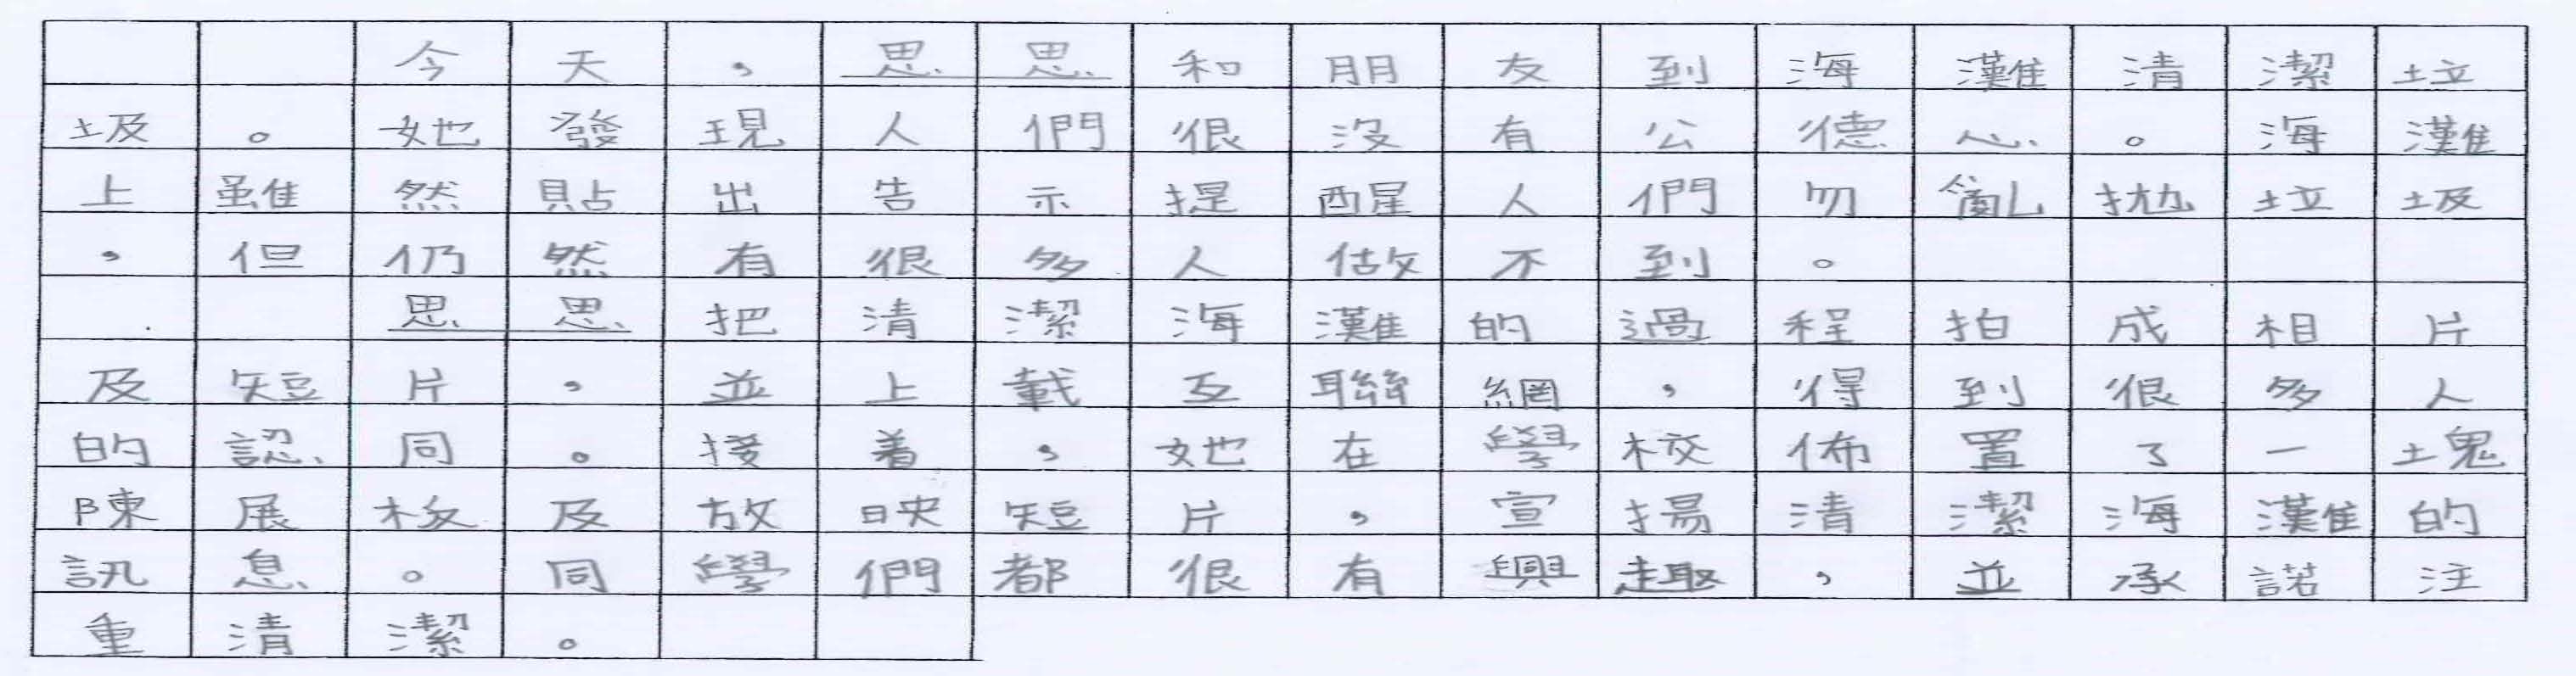 今天，思思和朋友到海灘清潔垃
圾。她發現人們很沒有公德心。海灘
上雖然貼出告示提醒人們勿亂拋垃圾
，但仍然有很多人做不到。
思思把清潔海灘的過程拍成相片
及短片，並上載互聯網，得到很多人
的認同。接着，她在學校佈置了一塊
陳展板及放映短片，宣揚清潔海灘的
訊息。同學們都很有興趣，並承諾注
重清潔。